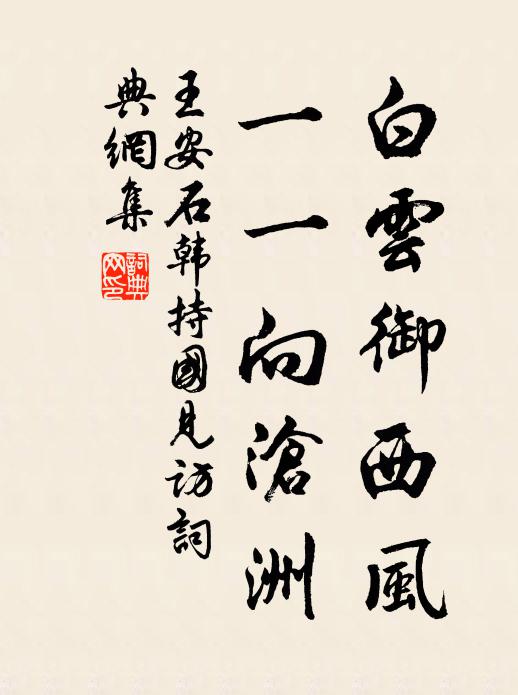 白雲御西風
一一向滄洲
王安石韩持國見访詞
典網集
詞典
网印